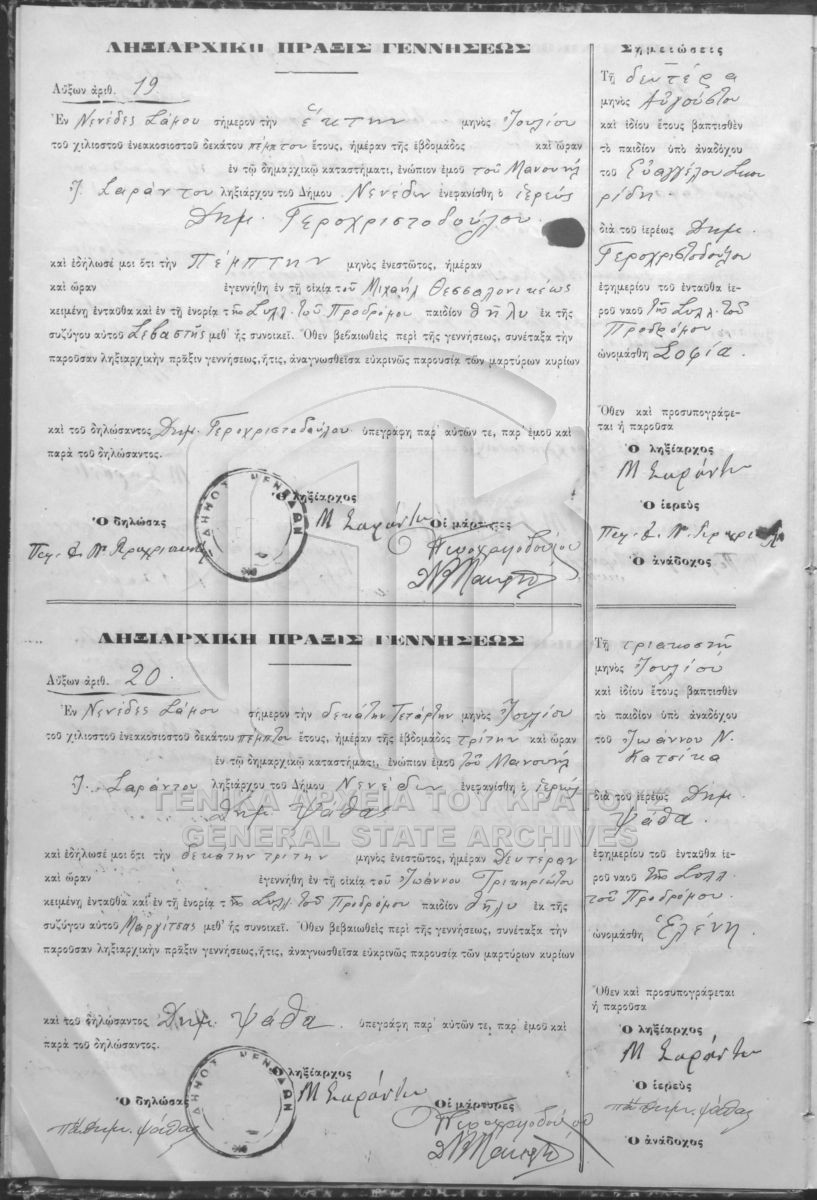 ΛΗΞΙΑΡΧΙΚΗ ΠΡΑΞΙΣ ΓΕΝΝΗΣΕΩΣ
Αὔξων ἀριθ. 19
Ἐν Νενέδες Σάμου σήμερον τὴν ἕκτην μηνὸς Ἰουλίου
τοῦ χιλιοστοῦ ἐνεακοσιοστοῦ δεκάτου πέμπτου ἔτους, ἡμέραν τῆς ἑβδομάδος καὶ ὥραν
ἐν τῷ δημαρχικῷ καταστήματι, ἐνώπιον ἐμοῦ τοῦ Μανουὴλ
Ἰ. Σαράντου ληξιάρχου τοῦ Δήμου Νενέδων ἐνεφανίσθη ὁ ἱερεὺς
Δημ. Γεροχριστοδούλου.
καὶ ἐδήλωσέ μοι ὅτι τὴν Πέμπτην μηνὸς ἐνεστῶτος, ἡμέραν
καὶ ὥραν ἐγεννήθη ἐν τῇ οἰκίᾳ τοῦ Μιχαὴλ Θεσσαλονικέως
κειμένῃ ἐνταῦθα καὶ ἐν τῇ ἐνορίᾳ τῆς Συλλ. τοῦ Προδρόμου παιδίον θῆλυ ἐκ τῆς
συζύγου αὐτοῦ Σεβαστῆς μεθ' ἧς συνοικεῖ. Ὅθεν βεβαιωθεὶς περὶ τῆς γεννήσεως, συνέταξα τὴν
παροῦσαν ληξιαρχικὴν πρᾶξιν γεννήσεως, ἥτις, ἀναγνωσθεῖσα εὐκρινῶς παρουσίᾳ τῶν μαρτύρων κυρίων
καὶ τοῦ δηλώσαντος Δημ. Γεροχριστοδούλου ὑπεγράφη παρ' αὐτῶν τε, παρ' ἐμοῦ καὶ
παρὰ τοῦ δηλώσαντος.
ΔΗΜΟΣ ΝΕΝΕΔΩΝ
Ὁ ληξίαρχος
Μ Σαράντου
Ὁ δηλώσας
Οἱ μάρτυρες
Σημειώσεις
Τῇ δευτέρᾳ
μηνὸς Αὐγούστου
καὶ ἰδίου ἔτους βαπτισθὲν
τὸ παιδίον ὑπὸ ἀναδόχου
τοῦ Εὐαγγέλου
ρίδη
διὰ τοῦ ἱερέως Δημ.
Γεροχριστοδούλου
ἐφημερίου τοῦ ἐνταῦθα ἱε-
ροῦ ναοῦ τῆς Συλλ. τοῦ
Προδρόμου
ὠνομάσθη Σοφία.
Ὅθεν καὶ προσυπογράφε-
ται ἡ παροῦσα
Ὁ ληξίαρχος
Μ Σαράντου
Ὁ ἱερεὺς
Ὁ ἀνάδοχος
ΛΗΞΙΑΡΧΙΚΗ ΠΡΑΞΙΣ ΓΕΝΝΗΣΕΩΣ
Αὔξων ἀριθ. 20.
Ἐν Νενέδες Σάμου σήμερον τὴν δεκάτην τετάρτην μηνὸς Ἰουλίου
τοῦ χιλιοστοῦ ἐνεακοσιοστοῦ δεκάτου πέμπτου ἔτους, ἡμέραν τῆς ἑβδομάδος τρίτην καὶ ὥραν
ἐν τῷ δημαρχικῷ καταστήματι, ἐνώπιον ἐμοῦ τοῦ Μανουὴλ
Ἰ. Σαράντου ληξιάρχου τοῦ Δήμου Νενέδων ἐνεφανίσθη ὁ ἱερεὺς
Δημ. Ψάθας
ΓΕΝΙΚΑ ΑΡΧΕΙΑ ΤΟΥ ΚΡΑΤΟΥΣ
GENERAL STATE ARCHIVES
καὶ ἐδήλωσέ μοι ὅτι τὴν δεκάτην τρίτην μηνὸς ἐνεστῶτος, ἡμέραν Δευτέραν
καὶ ὥραν ἐγεννήθη ἐν τῇ οἰκίᾳ τοῦ Ἰωάννου Τρικηριώτου
κειμένῃ ἐνταῦθα καὶ ἐν τῇ ἐνορίᾳ τῆς Συλλ. τοῦ Προδρόμου παιδίον θῆλυ ἐκ τῆς
συζύγου αὐτοῦ Μαργίτσας μεθ' ἧς συνοικεῖ. Ὅθεν βεβαιωθεὶς περὶ τῆς γεννήσεως, συνέταξα τὴν
παροῦσαν ληξιαρχικὴν πρᾶξιν γεννήσεως, ἥτις, ἀναγνωσθεῖσα εὐκρινῶς παρουσίᾳ τῶν μαρτύρων κυρίων
καὶ τοῦ δηλώσαντος Δημ. Ψάθα. ὑπεγράφη παρ' αὐτῶν τε, παρ' ἐμοῦ καὶ
παρὰ τοῦ δηλώσαντος.
ΔΗΜΟΣ ΝΕΝΕΔΩΝ
ληξίαρχος
Μ Σαράντου
Ὁ δηλώσας
Οἱ μάρτυρες
Τῇ τριακοστῇ
μηνὸς Ἰουλίου
καὶ ἰδίου ἔτους βαπτισθὲν
τὸ παιδίον ὑπὸ ἀναδόχου
τοῦ Ἰωάννου Ν.
Κατσίκα
διὰ τοῦ ἱερέως Δημ.
Ψάθα.
ἐφημερίου τοῦ ἐνταῦθα ἱε-
ροῦ ναοῦ τῆς Συλλ.
τοῦ Προδρόμου.
ὠνομάσθη Ἑλένη.
Ὅθεν καὶ προσυπογράφεται
ἡ παροῦσα
Ὁ ληξίαρχος
Μ Σαράντου
Ὁ ἱερεὺς
Ὁ ἀνάδοχος